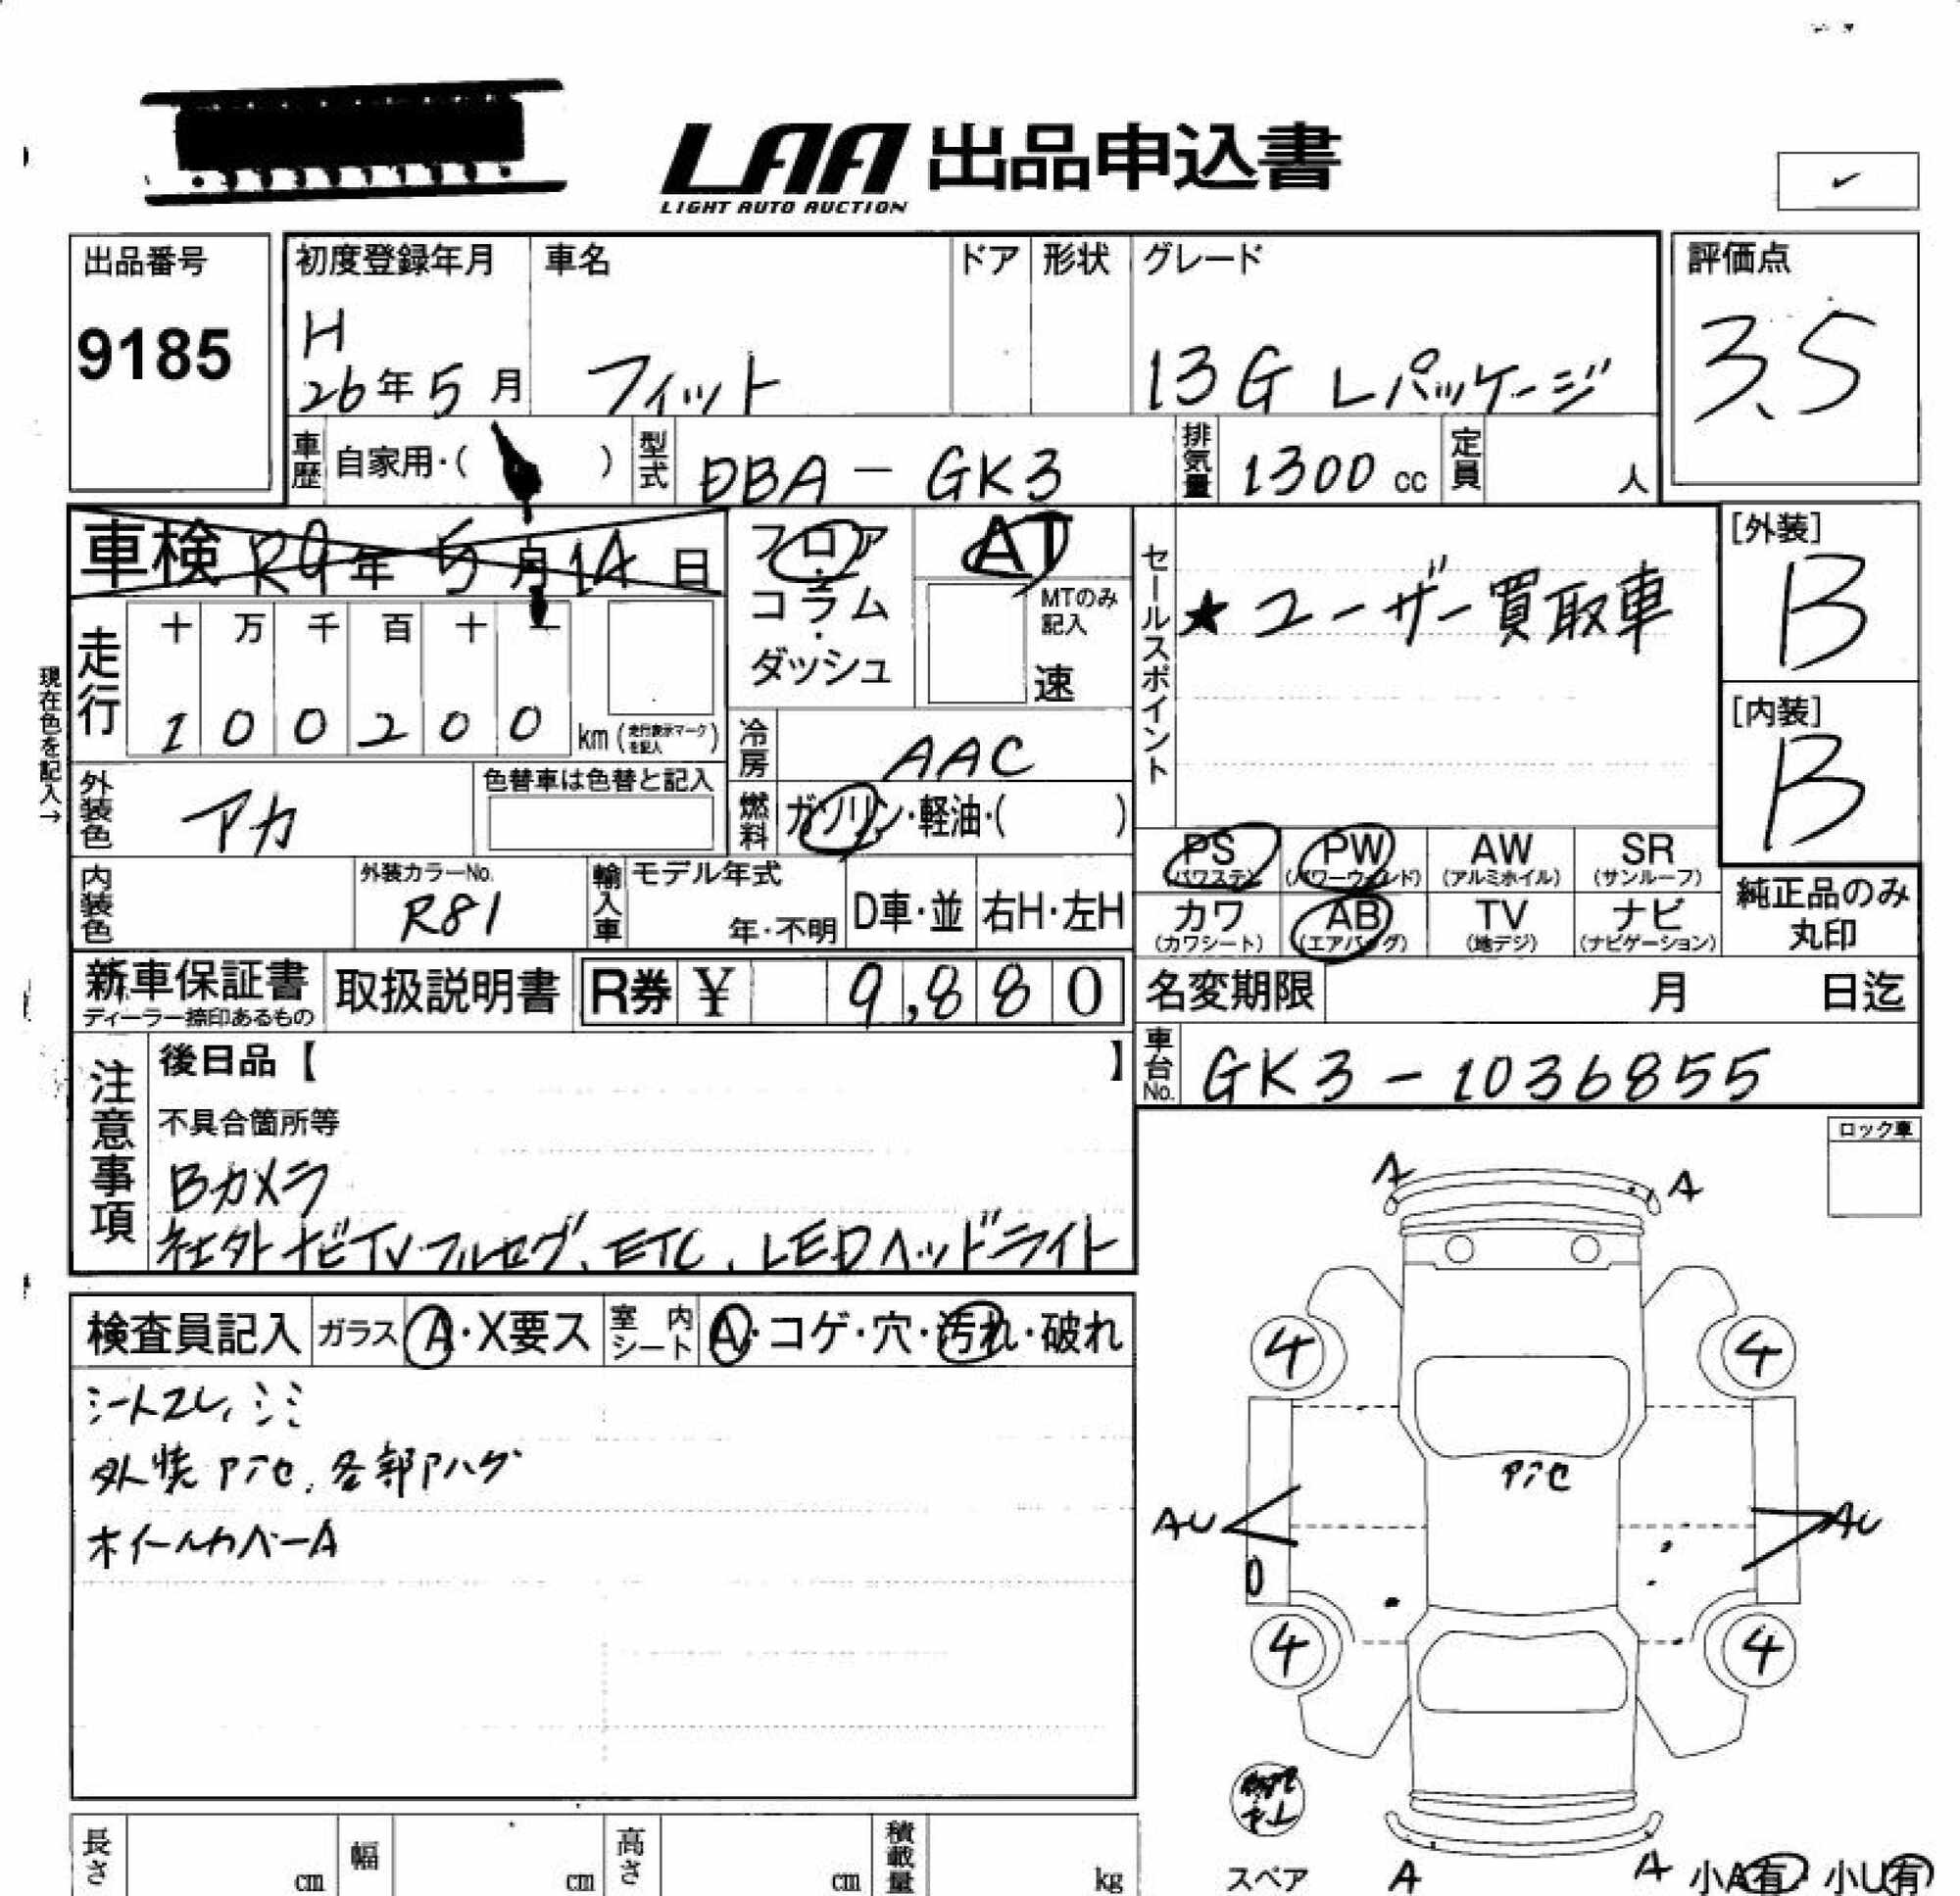 LAA 出品申込書
LIGHT AUTO AUCTION
出品番号
9185
初度登録年月
H
26年5月
車名
フィット
ドア
形状
グレード
13G Lパッケージ
評価点
3.5
車歴 自家用・( )
型式 DBA-GK3
排気量 1300 cc
定員 人
車検 R9年5月14日
フロア・コラム・ダッシュ
AT
MTのみ記入
速
セールスポイント
★ユーザー買取車
[外装]
B
[内装]
B
現在色を記入→
走行
十 万 千 百 十 一
1 0 0 2 0 0 km (走行表示マークを記入)
冷房 AAC
外装色 アカ
色替車は色替と記入
燃料 ガソリン・軽油・( )
PS (パワステ) PW (パワーウィンド) AW (アルミホイル) SR (サンルーフ)
カワ (カワシート) AB (エアバッグ) TV (地デジ) ナビ (ナビゲーション)
純正品のみ丸印
内装色
外装カラーNo.
R81
輸入車
モデル年式
年・不明
D車・並
右H・左H
新車保証書
ディーラー捺印あるもの
取扱説明書
R券 ¥ 9,880
名変期限 月 日迄
車台No. GK3-1036855
注意事項
後日品【 】
不具合箇所等
Bカメラ
社外ナビTVフルセグ、ETC、LEDヘッドライト
ロック車
検査員記入 ガラス A・X要ス 室内シート A・コゲ・穴・汚れ・破れ
シートスレ、シミ
外焼アセ、各部Pハゲ
ホイールカバーA
A A
4 4
Pアセ
AU AU
4 4
スペア
A A
小A有・小U有
長さ cm 幅 cm 高さ cm 積載量 kg